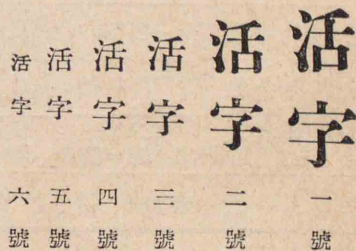 活字 一號
活字 二號
活字 三號
活字 四號
活字 五號
活字 六號